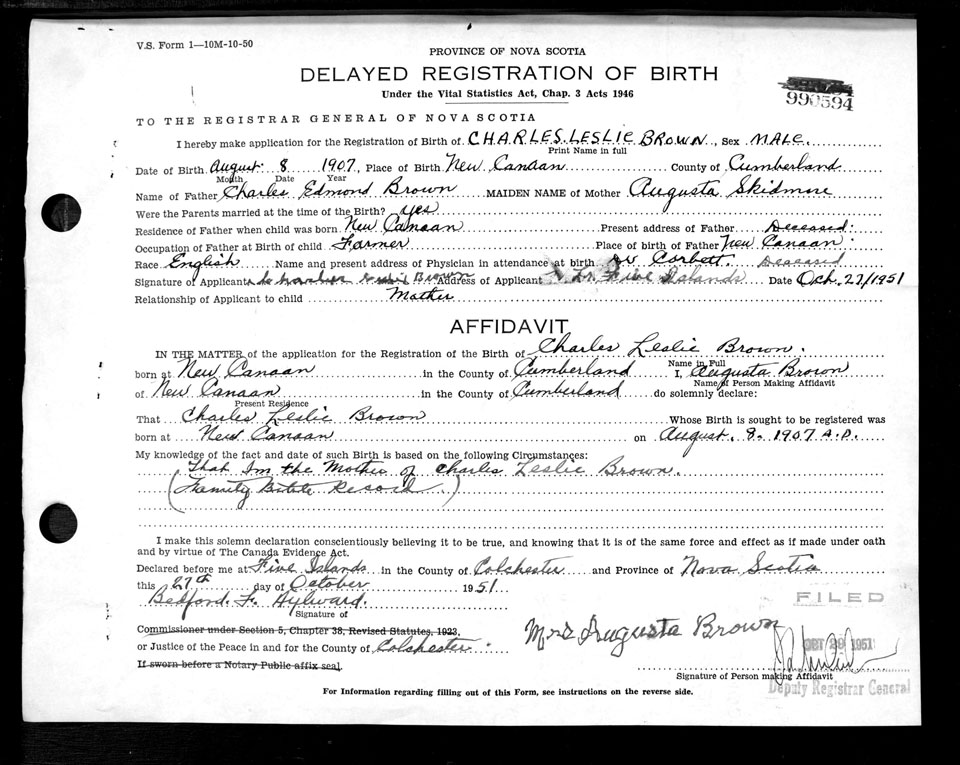 V.S. Form 1—10M-10-50
PROVINCE OF NOVA SCOTIA
DELAYED REGISTRATION OF BIRTH
Under the Vital Statistics Act, Chap. 3 Acts 1946
990594
TO THE REGISTRAR GENERAL OF NOVA SCOTIA
I hereby make application for the Registration of Birth of CHARLES LESLIE BROWN, Sex MALE.
Print Name in full
Date of Birth August 8 1907, Place of Birth New Canaan County of Cumberland
Month Date Year
Name of Father Charles Edmond Brown MAIDEN NAME of Mother Augusta Skidmore
Were the Parents married at the time of the Birth? yes
Residence of Father when child was born New Canaan Present address of Father Deceased
Occupation of Father at Birth of child Farmer Place of birth of Father New Canaan
Race English Name and present address of Physician in attendance at birth Dr Corbett Deceased
Signature of Applicant Brown Address of Applicant Five Islands Date Oct. 27/1951
Relationship of Applicant to child Mother
AFFIDAVIT
IN THE MATTER of the application for the Registration of the Birth of Charles Leslie Brown.
Name in Full
born at New Canaan in the County of Cumberland I, Augusta Brown
Name of Person Making Affidavit
of New Canaan in the County of Cumberland do solemnly declare:
Present Residence
That Charles Leslie Brown Whose Birth is sought to be registered was
born at New Canaan on August. 8. 1907 A.D.
My knowledge of the fact and date of such Birth is based on the following Circumstances:
That Im the Mother of Charles Leslie Brown.
(Family Bible Record.)
I make this solemn declaration conscientiously believing it to be true, and knowing that it is of the same force and effect as if made under oath
and by virtue of The Canada Evidence Act.
Declared before me at Five Islands in the County of Colchester and Province of Nova Scotia
this 27th day of October 1951
Bedford. F. Aylward.
Signature of
FILED
Commissioner under Section 5, Chapter 38, Revised Statutes, 1923,
or Justice of the Peace in and for the County of Colchester.
Mrs Augusta Brown
OCT 29 1951
If sworn before a Notary Public affix seal.
Signature of Person making Affidavit
Deputy Registrar General
For Information regarding filling out of this Form, see instructions on the reverse side.